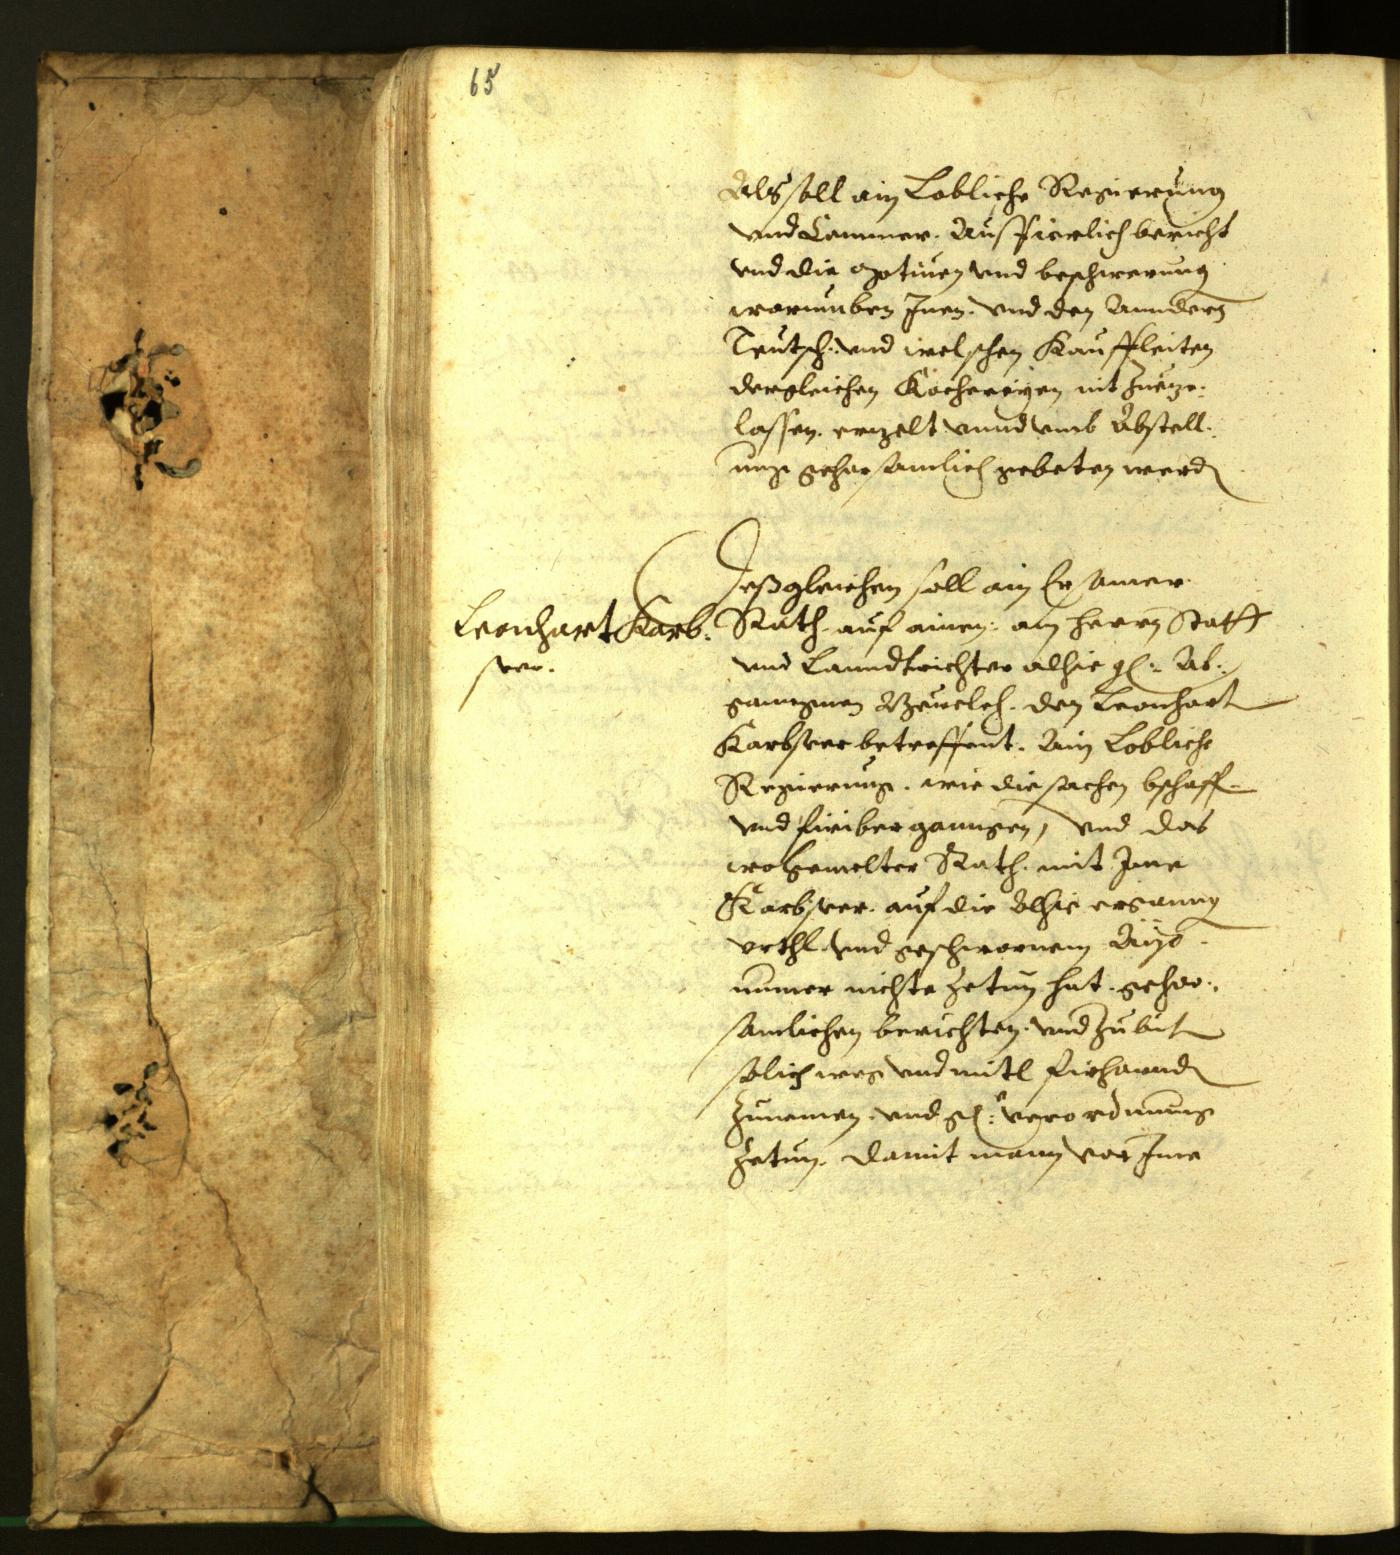 65
Als soll ain Lobliche Regierung
vnd Camer. Ausfierlich bericht
vnd die motiuen vnd beschwerung
warumben Inen. vnd den Anndern
Teutsch: vnd welschen Kauffleiten
dergleichen Kochereyen nit zueze-
lassen. erzelt vnnd vmb Abstell-
ung gehorsamlich gebeten werd
Deßgleichen soll ain Ersamer
Leonhart Karb-
ser.
Rath. auf ainen: an herrn Statt
vnd Lanndtrichter alhie
ganngnen Beuelch. den Leonhart
Karbser betreffent. Ain Lobliche
Regierung. wie die sachen bschaff-
vnd firibergangen, vnd das
wolgemelter Rath. mit Ime
Karbser. auf die Alhie erganng
vrthl. vnd geschwornem
numer nichts zetun hat. gehor-
samlichen berichten. vnd zu
solich weg vnd mitl
zunemen. vnd verordnung
zetun. damit mann vor Ime